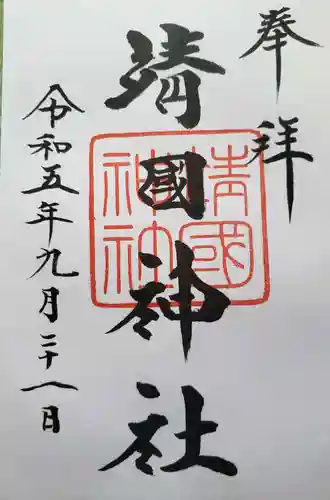 奉拝
靖國神社
靖國
神社
令和五年九月二十八日